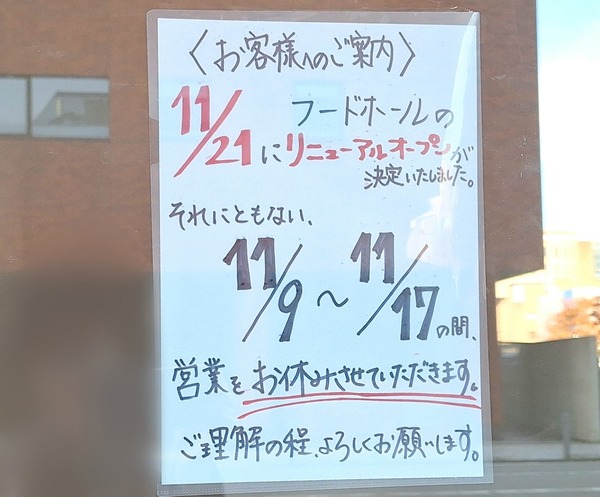 〈お客様へのご案内〉
11/21 フードホールの
にリニューアルオープンが
決定いたしました。
それにともない、
11/9〜11/17の間、
営業をお休みさせていただきます。
ご理解の程、よろしくお願いします。